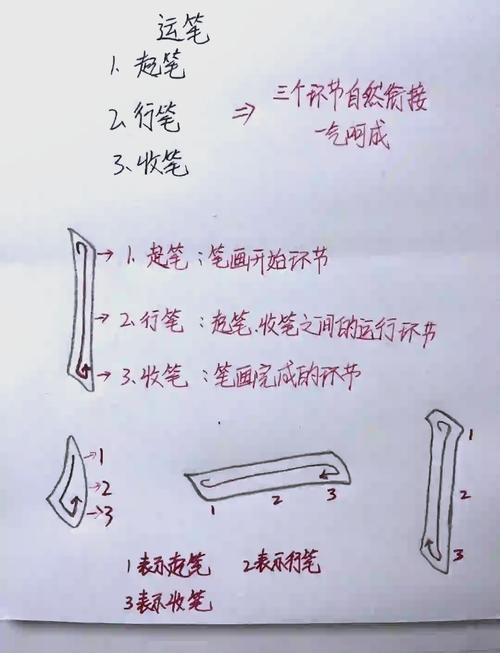 运笔
1、起笔
2、行笔 ⇒ 三个环节自然衔接
一气呵成
3、收笔
1、起笔：笔画开始环节
2、行笔：起笔、收笔之间的运行环节
3、收笔：笔画完成的环节
1
2
3
1 2 3
1
2
3
1表示起笔 2表示行笔
3表示收笔